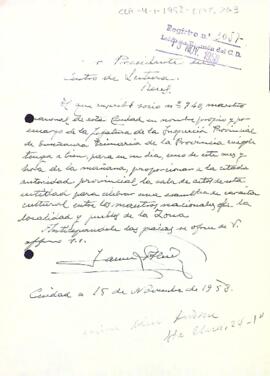 Registro n.º 2057
Presidente del
Centro de Lectura
Reus
El que suscribe socio nº 740, maestro
nacional de esta Ciudad en nombre propio y por
encargo de la Jefatura de la Inspección Provincial
de Enseñanza Primaria de la Provincia
tengan a bien, para un día, de este mes y
hora de la mañana, proporcionar a la citada
autoridad provincial, la sala de actos de esta
entidad para celebrar una asamblea de carácter
cultural entre los maestros nacionales de la
localidad y pueblos de la Zona.
Anticipándole las gracias se ofrece de V.
affmo. s.s.
Ciudad a 15 de Noviembre de 1953.